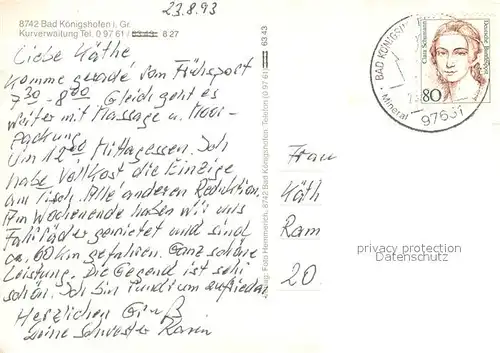 23.8.93
8742 Bad Königshofen i. Gr.
Kurverwaltung Tel. 0 97 61 / 63 43 8 27
Liebe Käthe
Komme gerade vom Frühsport
7 30 - 8 00 Gleich geht es
weiter mit Massage u. Moor-
Packung
Um 12 00 Mittagessen. Ich
habe Vollkost die Einzige
am Tisch. Alle anderen Reduktion.
Am Wochenende haben wir uns
Fahrräder gemietet und sind
ca. 60 km gefahren. Ganz schöne
Leistung. Die Gegend ist sehr
schön. Ich bin rundrum zufrieden
Herzlichen Gruß
Deine Schwester Karin
Foto Hemmerich, 8742 Bad Königshofen, Telefon (0 97 61) 63 43
BAD KÖNIGSH
Mineral
97631
Clara Schumann
Deutsche Bundespost
80
Frau
Käth
Ram
20
privacy protection
Datenschutz